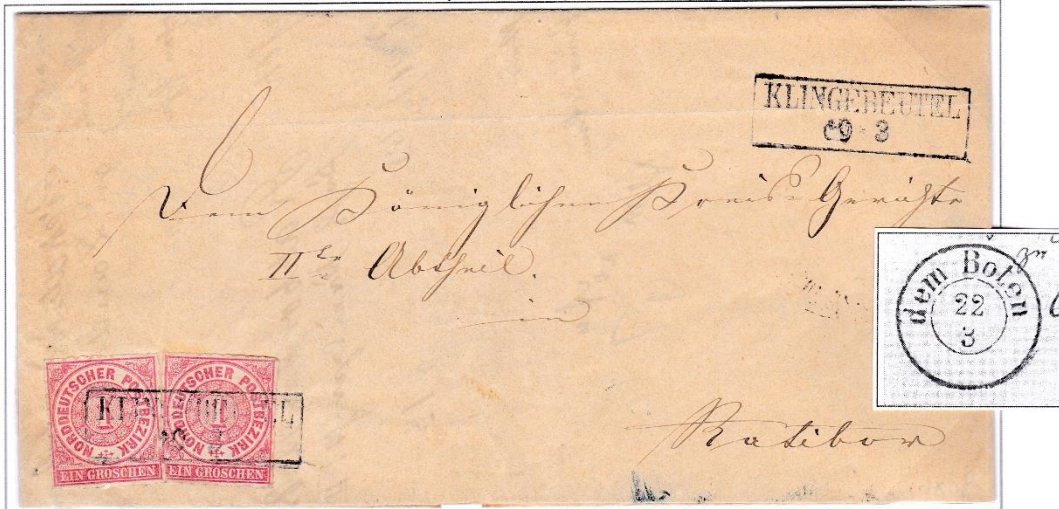 KLINGEBEUTEL
29 3
Dem Königlichen Kreis-Gerichte
IIte Abtheil.
in
Ratibor
dem Boten
22
3
NORDDEUTSCHER POSTBEZIRK
1
EIN GROSCHEN
NORDDEUTSCHER POSTBEZIRK
1
EIN GROSCHEN